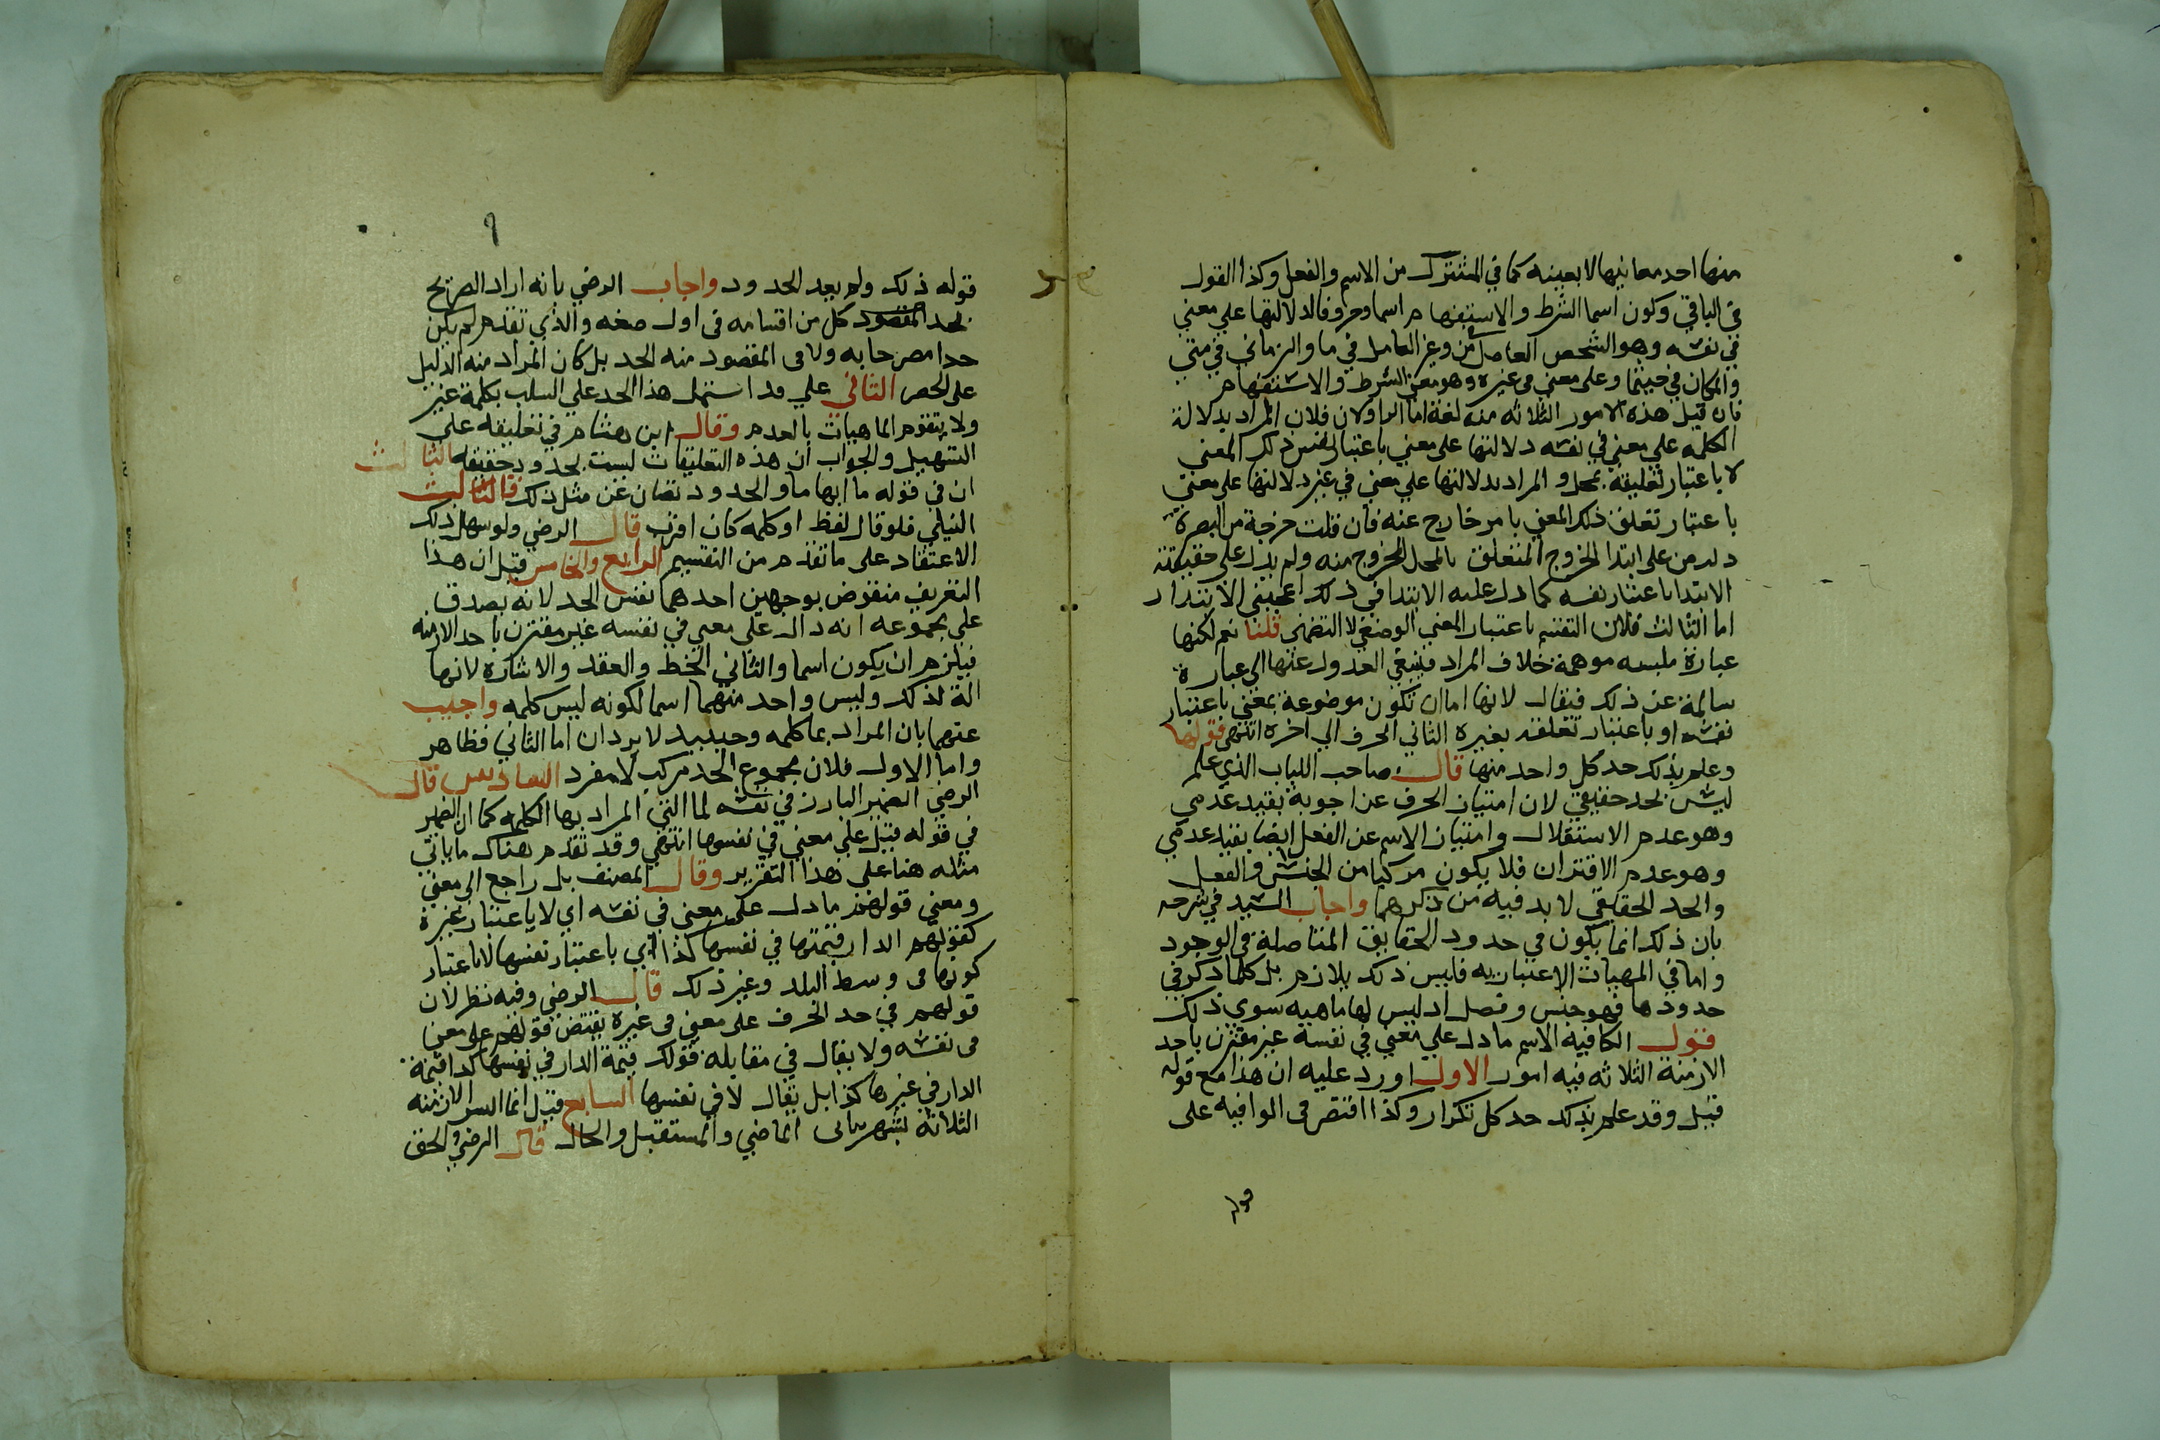 منها احد معانيها لا بعينه كما في المشترك من الاسم والفعل وكذا القول
في الباقي وكون اسما الشرط والاستفهام اسما وحروفا لدلالتها علي معني
في نفسه وهو الشخص العاقل من وغير العامل في ما والزماني في متي
والمكان في حيثما وعلى معني في غيره وهو معني الشرط والاستفهام
فان قيل هذه الامور الثلاثه منه لغة اما الاولان فلان المراد بدلالة
الكلمه علي معني في نفسه دلالتها على معني باعتبار نفس ذلك المعني
لا باعتبار تعليقه بمحل والمراد بدلالتها علي معني في غيره دلالتها على معني
باعتبار تعلق ذلك المعني بامر خارج عنه فان قلت خرجت من البصرة
دلت من على ابتدا الخروج المتعلق بالمحل المخروج منه ولم يدل على حقيقة
الابتدا باعتبار نفسه كما دل عليه الابتدا في ذلك اعجبني الابتدا و
اما الثالث فلان التقسيم باعتبار المعني الوضعي لا التضمني قلنا نعم لكنها
عبارة ملبسه موهمة خلاف المراد فينبغي العدول عنها الي عبارة
سالمة عن ذلك فيقال لانها اما ان تكون موضوعة بمعني باعتبار
نفسه او باعتبار تعلقه بغيره الثاني الحرف الي اخره انتهى قولها
وعلم بذلك حد كل واحد منها قال صاحب اللباب الذي علم
ليس بحد حقيقي لان امتياز الحرف عن اخويه بقيد عدمي
وهو عدم الاستقلال وامتياز الاسم عن الفعل ايضا بقيد عدمي
وهو عدم الاقتران فلا يكون مركبا من الجنس والفصل
والحد الحقيقي لا بد فيه من ذكرهما واجاب السيد في شرحه
بان ذلك انما يكون في حدود الحقايق المتاصلة في الوجود
واما في المهيات الاعتباريه فليس ذلك بلازم بل كلما ذكر في
حدودها فهو جنس وفصل اذ ليس لها ماهيه سوي ذلك
قول الكافية الاسم ما دل علي معني في نفسه غير مقترن باحد
الازمنة الثلاثه فيه امور الاول اورد عليه ان هذا مع قوله
قبل وقد علم بذلك حد كل تكرار وكذا اقتصر في الوافيه على
قوله
٩
قوله ذلك ولم يعد الحدود واجاب الرضي بانه اراد الصريح
بحد المقصود كل من اقسامه في اول صفه والذي تقدم لم يكن
حدا مصرحا به ولا في المقصود منه الحد بل كان المراد منه الدليل
على الحصر الثاني علي قد اشتمل هذا الحد علي السلب بكلمة غير
ولا يتقوم الماهيات بالعدم وقال ابن هشام في تعليقه علي
التسهيل والجواب ان هذه التعليقات ليست بحدود حقيقه الثالث
ان في قوله ما ابهاما والحدود تصان عن مثل ذلك قال الثالث
النيلي فلو قال لفظ او كلمه كان اقرب قال الرضي ولو سهل ذلك
الاعتقاد على ما تقدم من التقسيم الرابع والخامس قيل ان هذا
التعريف منقوض بوجهين احدهما نفس الحد لانه يصدق
علي مجموعه انه دال على معني في نفسه غير مقترن باحد الازمنه
فيلزم ان يكون اسما والثاني الخط والعقد والاشارة لانها
الة لذلك وليس واحد منهما اسما لكونه ليس كلمه واجيب
عنهما بان المراد بما كلمه وحينيذ لا يردان اما الثاني فظاهر
واما الاول فلان مجموع الحد مركب لا مفرد السادس قال
الرضي الضمير البارز في نفسه لما التي المراد بها الكلمة كما ان الضمير
في قوله قبل علي معني في نفسها انتهي وقد تقدم هناك ما ياتي
مثله هنا على هذا التقرير وقال المصنف بل راجع الي معني
ومعني قولهم ما دل علي معني في نفسه اي لا باعتبار غيره
كقولهم الدار قيمتها في نفسها كذا اي باعتبار نفسها لا باعتبار
كونها في وسط البلد وغير ذلك قال الرضي وفيه نظر لان
قولهم في حد الحرف على معني في غيره نقيض قولهم علي معني
في نفسه ولا يقال في مقابله قولك قيمة الدار في نفسها كذا قيمة
الدار في غيرها كذا بل يقال لا في نفسها السابع قيل انما الازمنه
الثلاثة الماضي والمستقبل والحال قال الرضي والحق